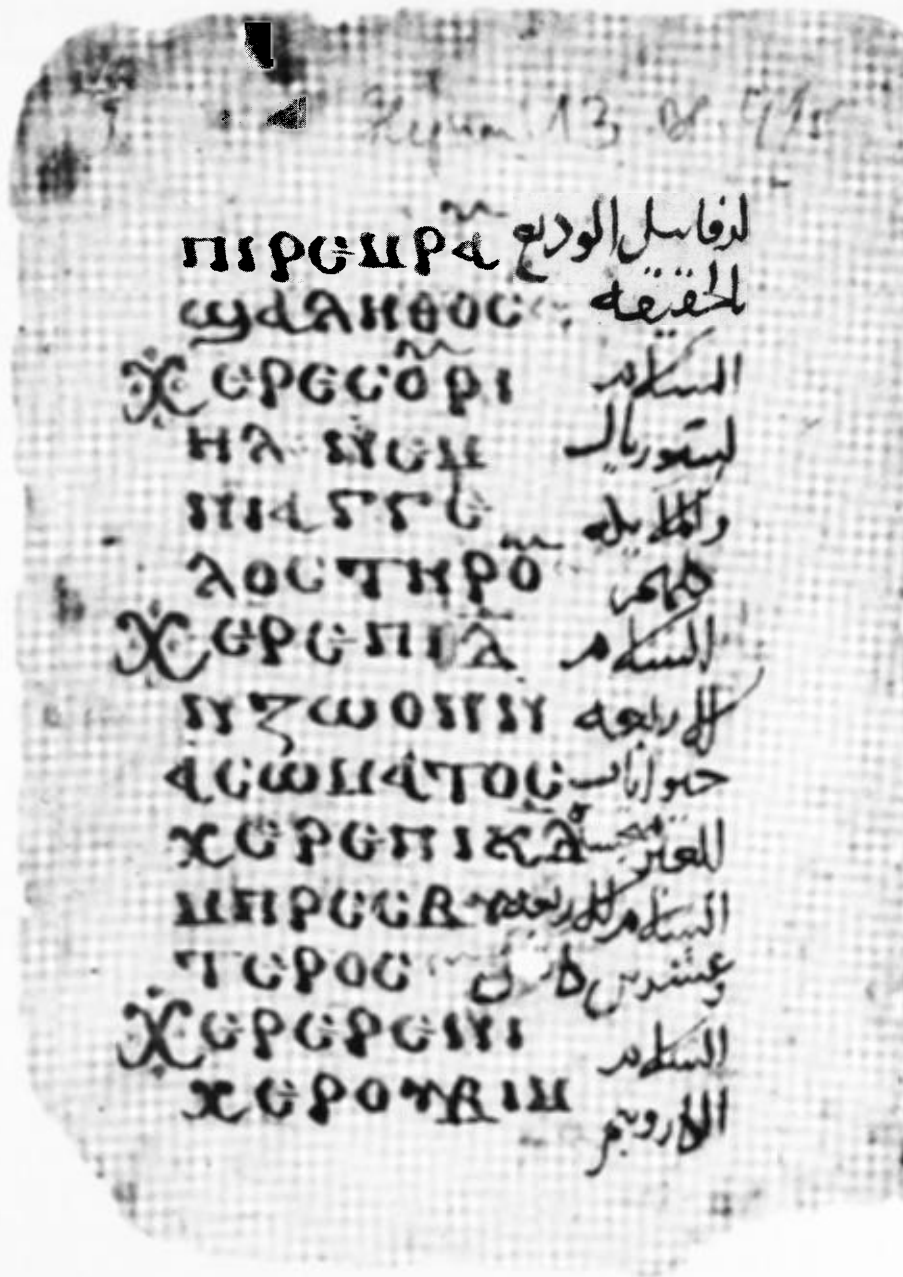 ⲡⲓⲣⲉⲙⲣⲁ لرفاييل الوديع
ϣⲁⲗⲏⲑⲟⲥ بالحقيقه
ⲭⲉⲣⲉⲥⲟⲣⲓ السلام
ⲏⲗ ⲛⲉⲙ لسوريال
ⲛⲓⲁⲅⲅⲉ والملايكه
ⲗⲟⲥⲧⲏⲣⲟ كلهم
ⲭⲉⲣⲉⲡⲓⲇ السلام
ⲛⲍⲱⲟⲛⲛ للاربعه
ⲁⲥⲱⲙⲁⲧⲟⲥ حيوانات
ⲭⲉⲣⲉⲡⲓⲕⲇ الغير
ⲙⲡⲣⲉⲥⲃⲩ السلام للاربعه
ⲧⲉⲣⲟⲥ وعشرين
ⲭⲉⲣⲉⲣⲉⲛⲓ السلام
ⲭⲉⲣⲟⲩⲃⲓⲙ الكاروبيم